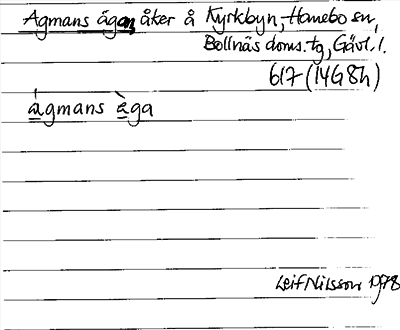 Agmans ägan, åker å Kyrkbyn, Hanebo sn,
Bollnäs doms. tg, Gävl. l.
617 (14G 8h)
agmans äga
Leif Nilsson 1978